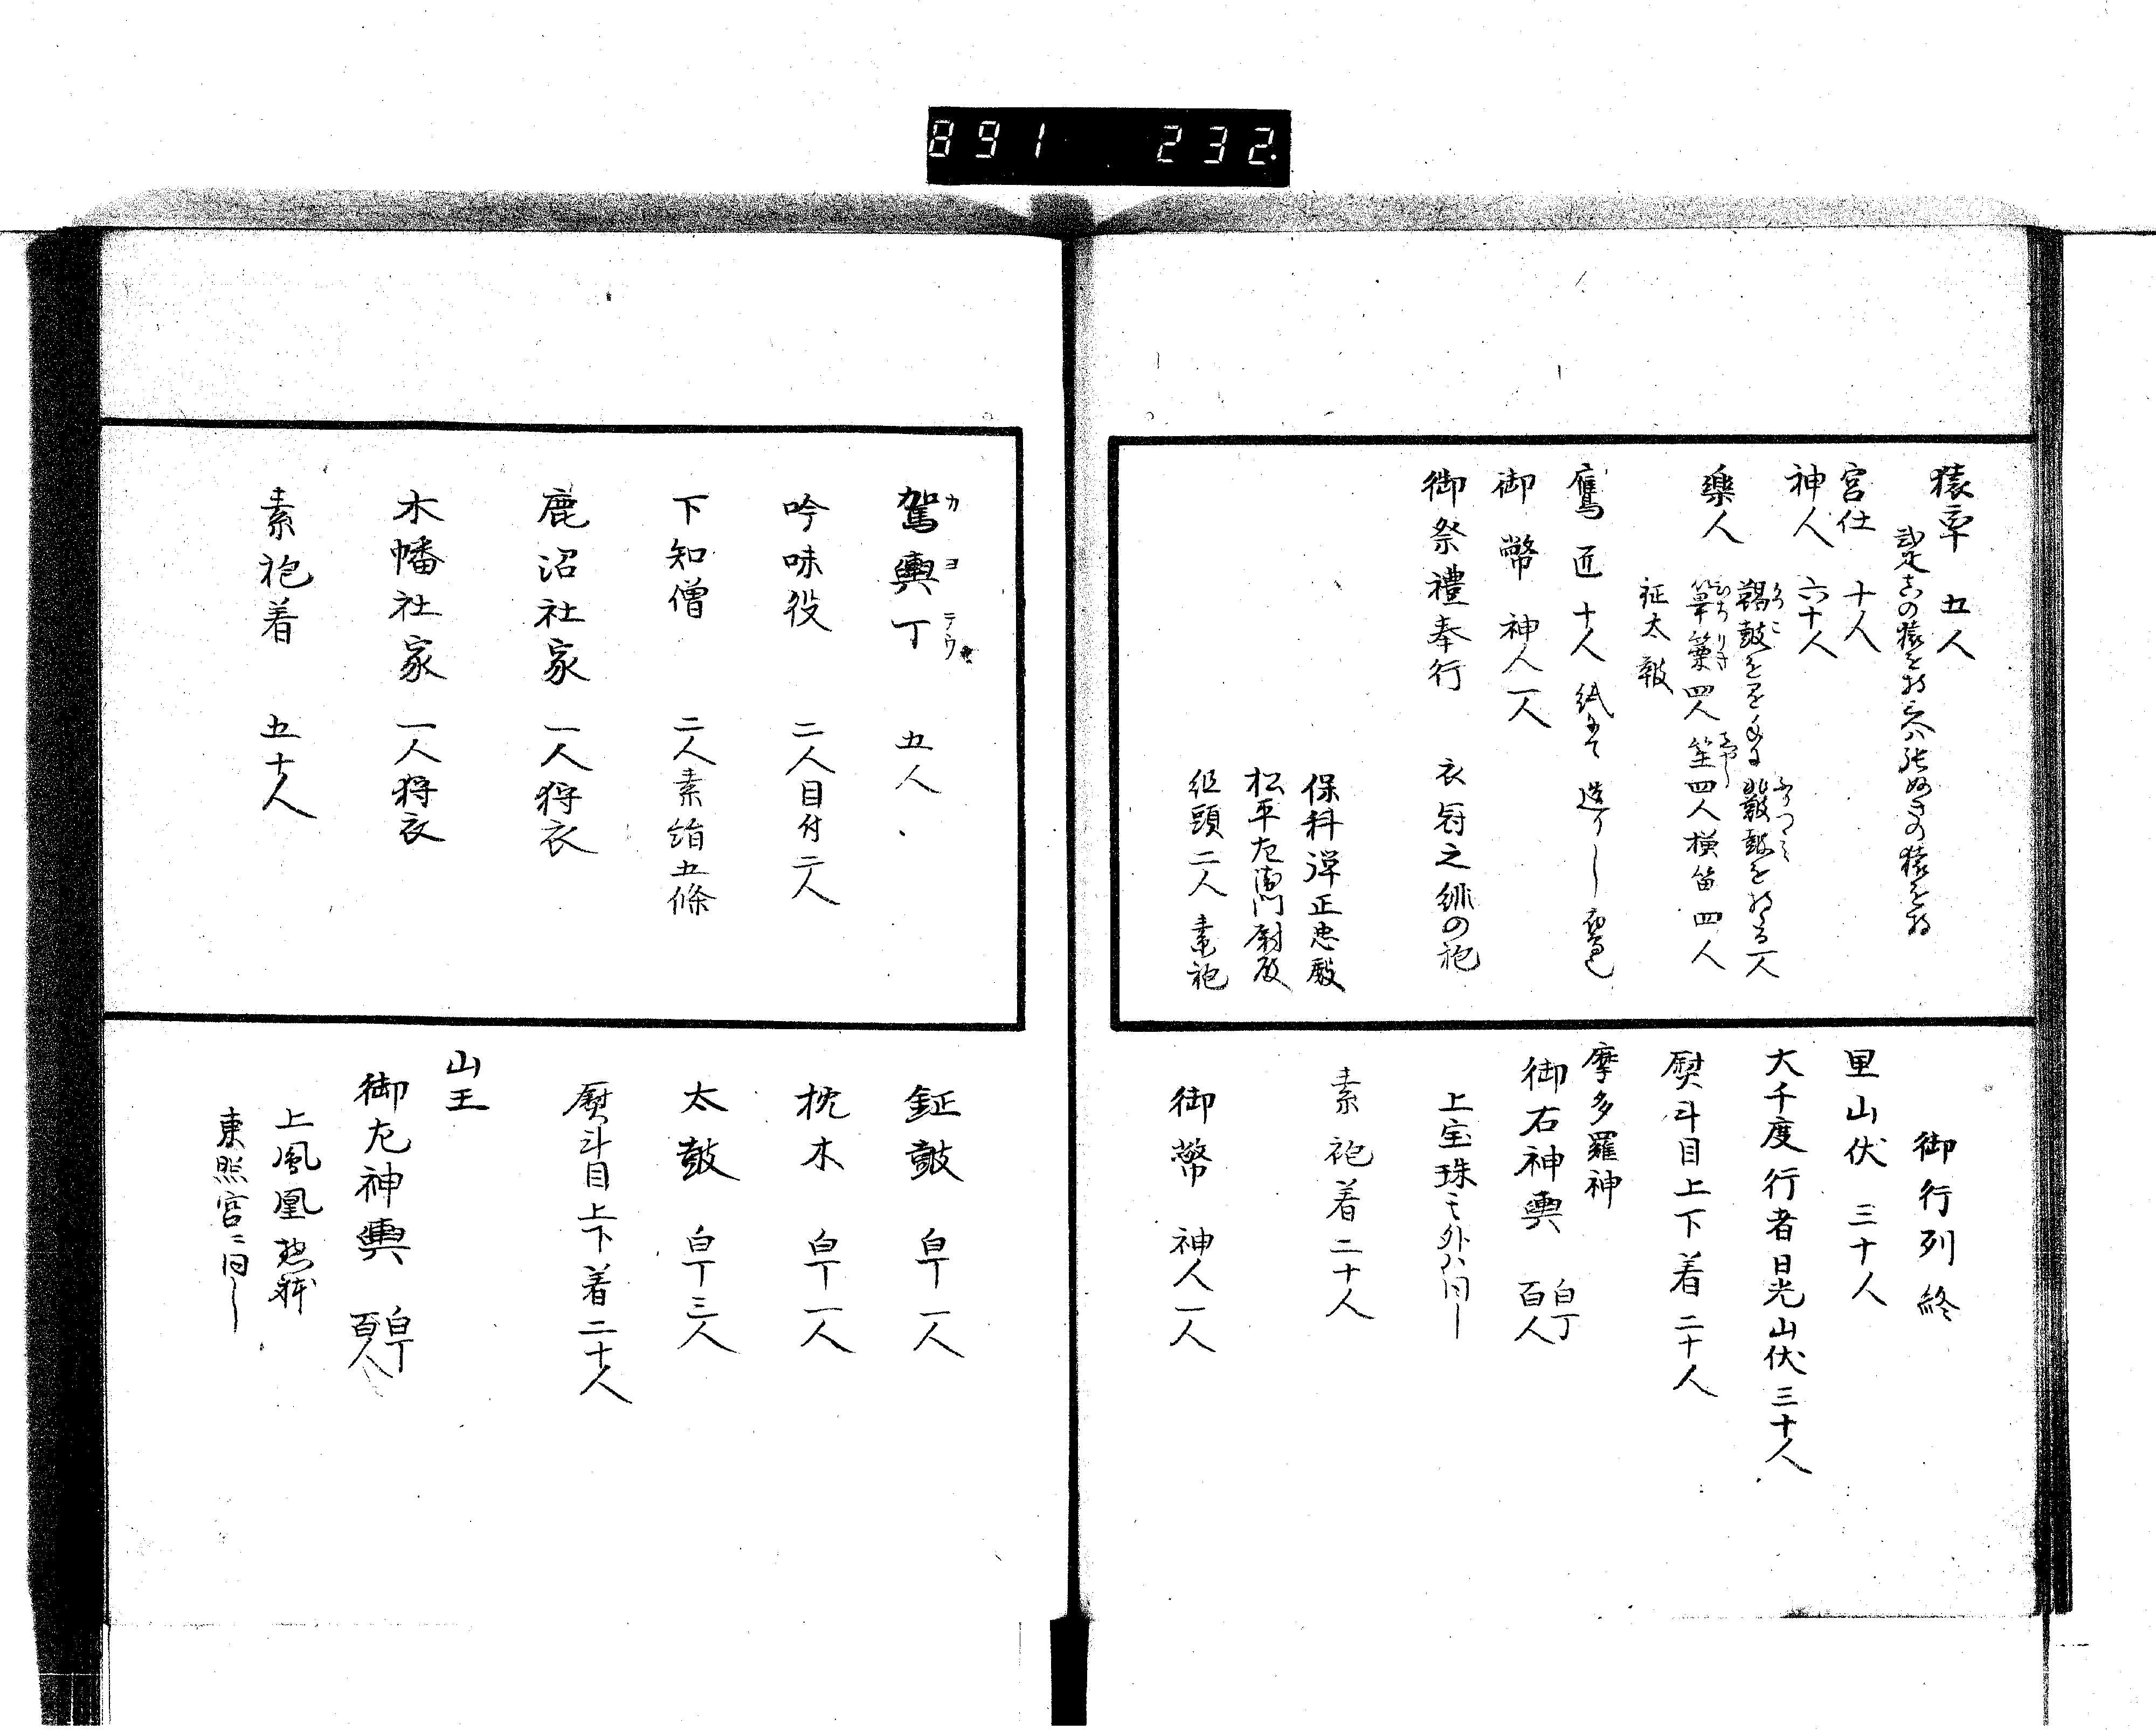 891 232.
猿牽 五人
宮仕 十人
神人 六十人
樂人
篳篥四人笙四人横笛四人
征太鼓
鷹匠 十人 紙にて造りし
御幣 神人一人
御祭禮奉行 衣冠之緋の袍
保科弾正忠殿
松平左衛門尉殿
組頭二人 素袍
駕輿丁 五人
カヨテウ
吟味役 二人目付二人
下知僧 二人素絹五條
鹿沼社家 一人狩衣
木幡社家 一人狩衣
素袍着 五十人
御行列終
里山伏 三十人
大千度行者日光山伏三十人
熨斗目上下着二十人
摩多羅神
御右神輿 白丁百人
上宝珠其外ハ同し
素袍着二十人
御幣 神人一人
鉦鼓 白丁一人
枕木 白丁一人
太鼓 白丁三人
熨斗目上下着二十人
山王
御左神輿 白丁百人
上鳳凰惣躰
東照宮ニ同し